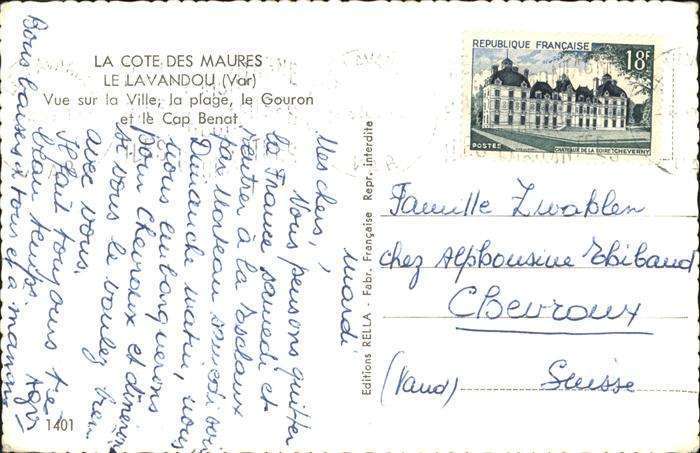 LA COTE DES MAURES
LE LAVANDOU (Var)
Vue sur la Ville, la plage, le Gouron
et le Cap Benat
REPUBLIQUE FRANÇAISE
18F
POSTES
CHATEAUX DE LA LOIRE CHEVERNY
Editions RELLA - Fabr. Française Repr. interdite
mardi
Mes chers,
Nous pensons quitter
la France samedi et
rentrer à la
par Morteau samedi soir
Dimanche matin, nous
nous embarquerons
pour Chevroux et dinerons
si vous le voulez bien
avec vous.
Il fait toujours très
beau temps.
Bons baisers à tous et à maman
Famille Zwahlen
chez Alphonsine Thibaud
Chevroux
(Vaud) Suisse
1401